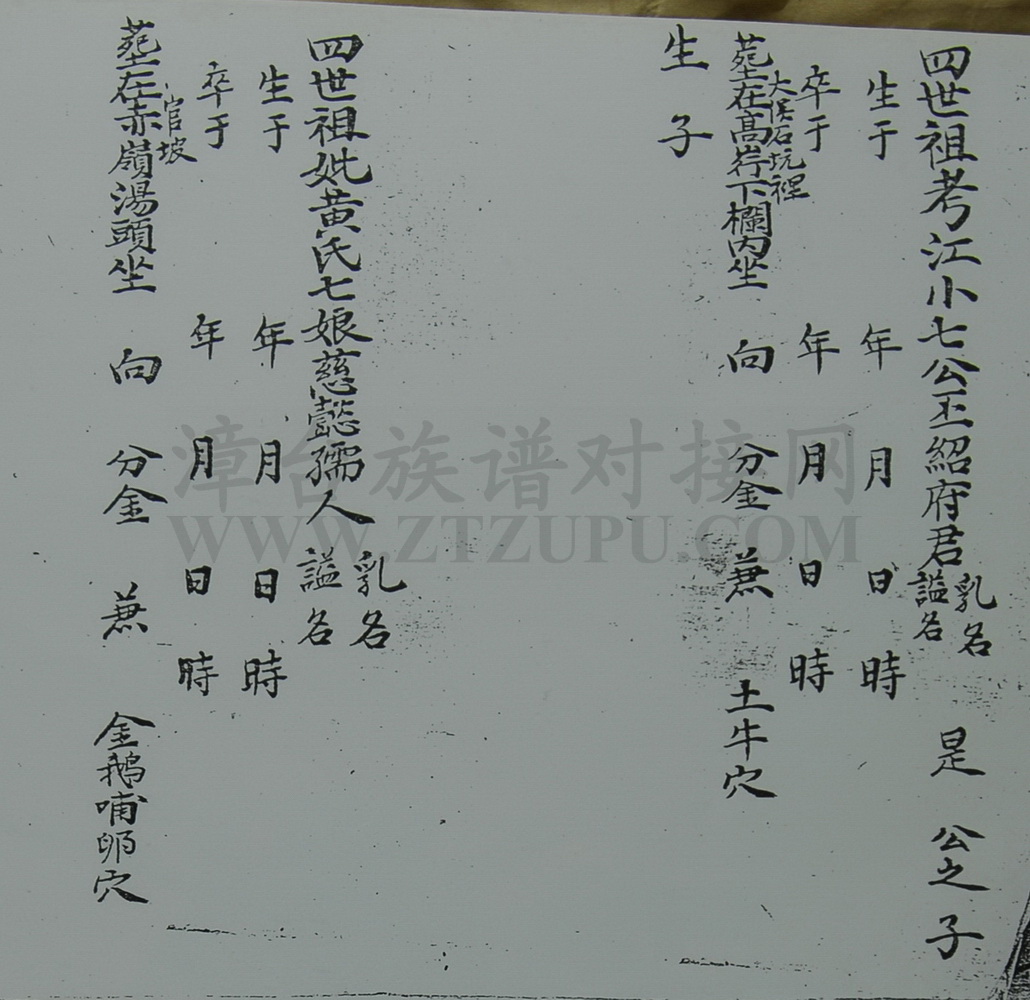 四世祖考江小七公玉紹府君 乳名 諡名 是 公之子
生于 年 月 日 時
卒于 年 月 日 時
大溪石坑裡
塟在高岽下欄內坐 向 分金 兼 土牛穴
生子
四世祖妣黃氏七娘慈懿孺人 乳名 諡名
生于 年 月 日 時
卒于 年 月 日 時
官坡
塟在赤嶺湯頭坐 向 分金 兼 金鵝哺卵穴
漳台族谱对接网
WWW.ZTZUPU.COM